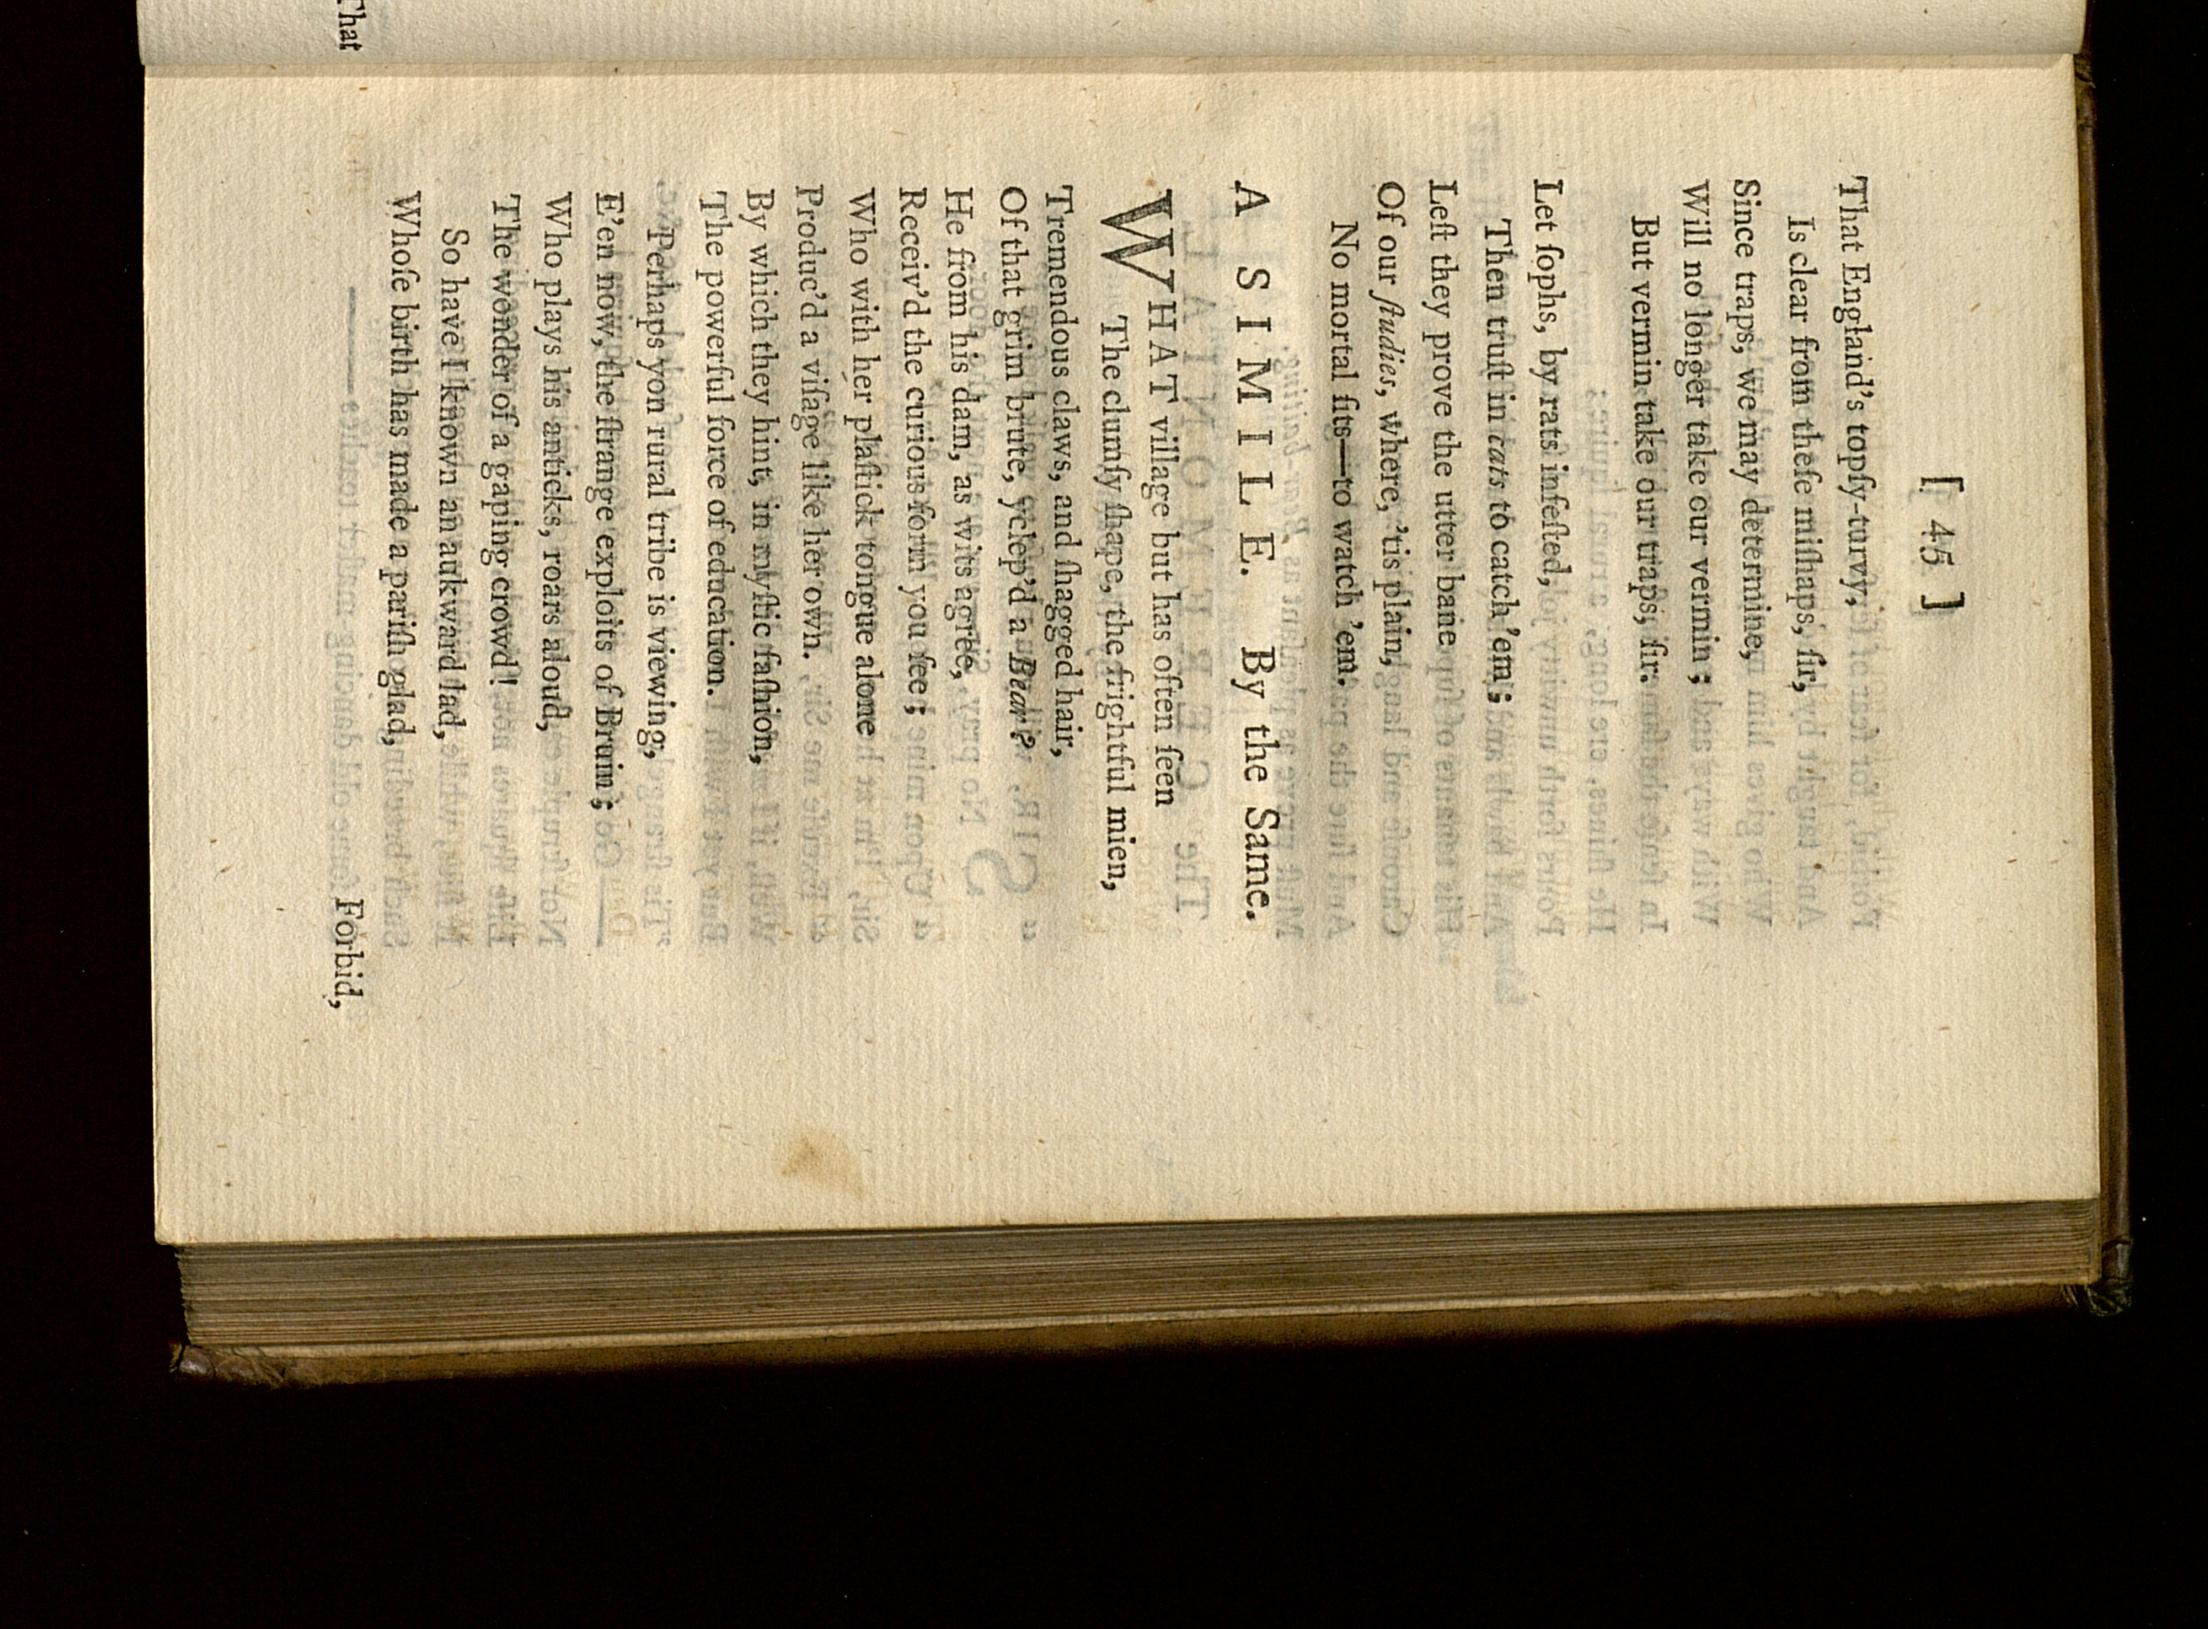 That
[ 45 ]
That England's topſy-turvy,
Is clear from theſe miſhaps, ſir,
Since traps, we may determine,
Will no longer take our vermin;
But vermin take our traps, ſir.
Let ſophs, by rats infeſted,
Then truſt in cats to catch 'em;
Leſt they prove the utter bane
Of our ſtudies, where, 'tis plain,
No mortal ſits—to watch 'em.
A SIMILE. By the Same.
WHAT village but has often ſeen
The clumſy ſhape, the frightful mien,
Tremendous claws, and ſhagged hair,
Of that grim brute, yclep'd a Bear?
He from his dam, as wits agree,
Receiv'd the curious form you ſee;
Who with her plaſtick tongue alone
Produc'd a viſage like her own.
By which they hint, in myſtic faſhion,
The powerful force of education.
Perhaps yon rural tribe is viewing,
E'en now, the ſtrange exploits of Bruin;
Who plays his anticks, roars aloud,
The wonder of a gaping crowd!
So have I known an aukward lad,
Whoſe birth has made a pariſh glad,
Forbid,